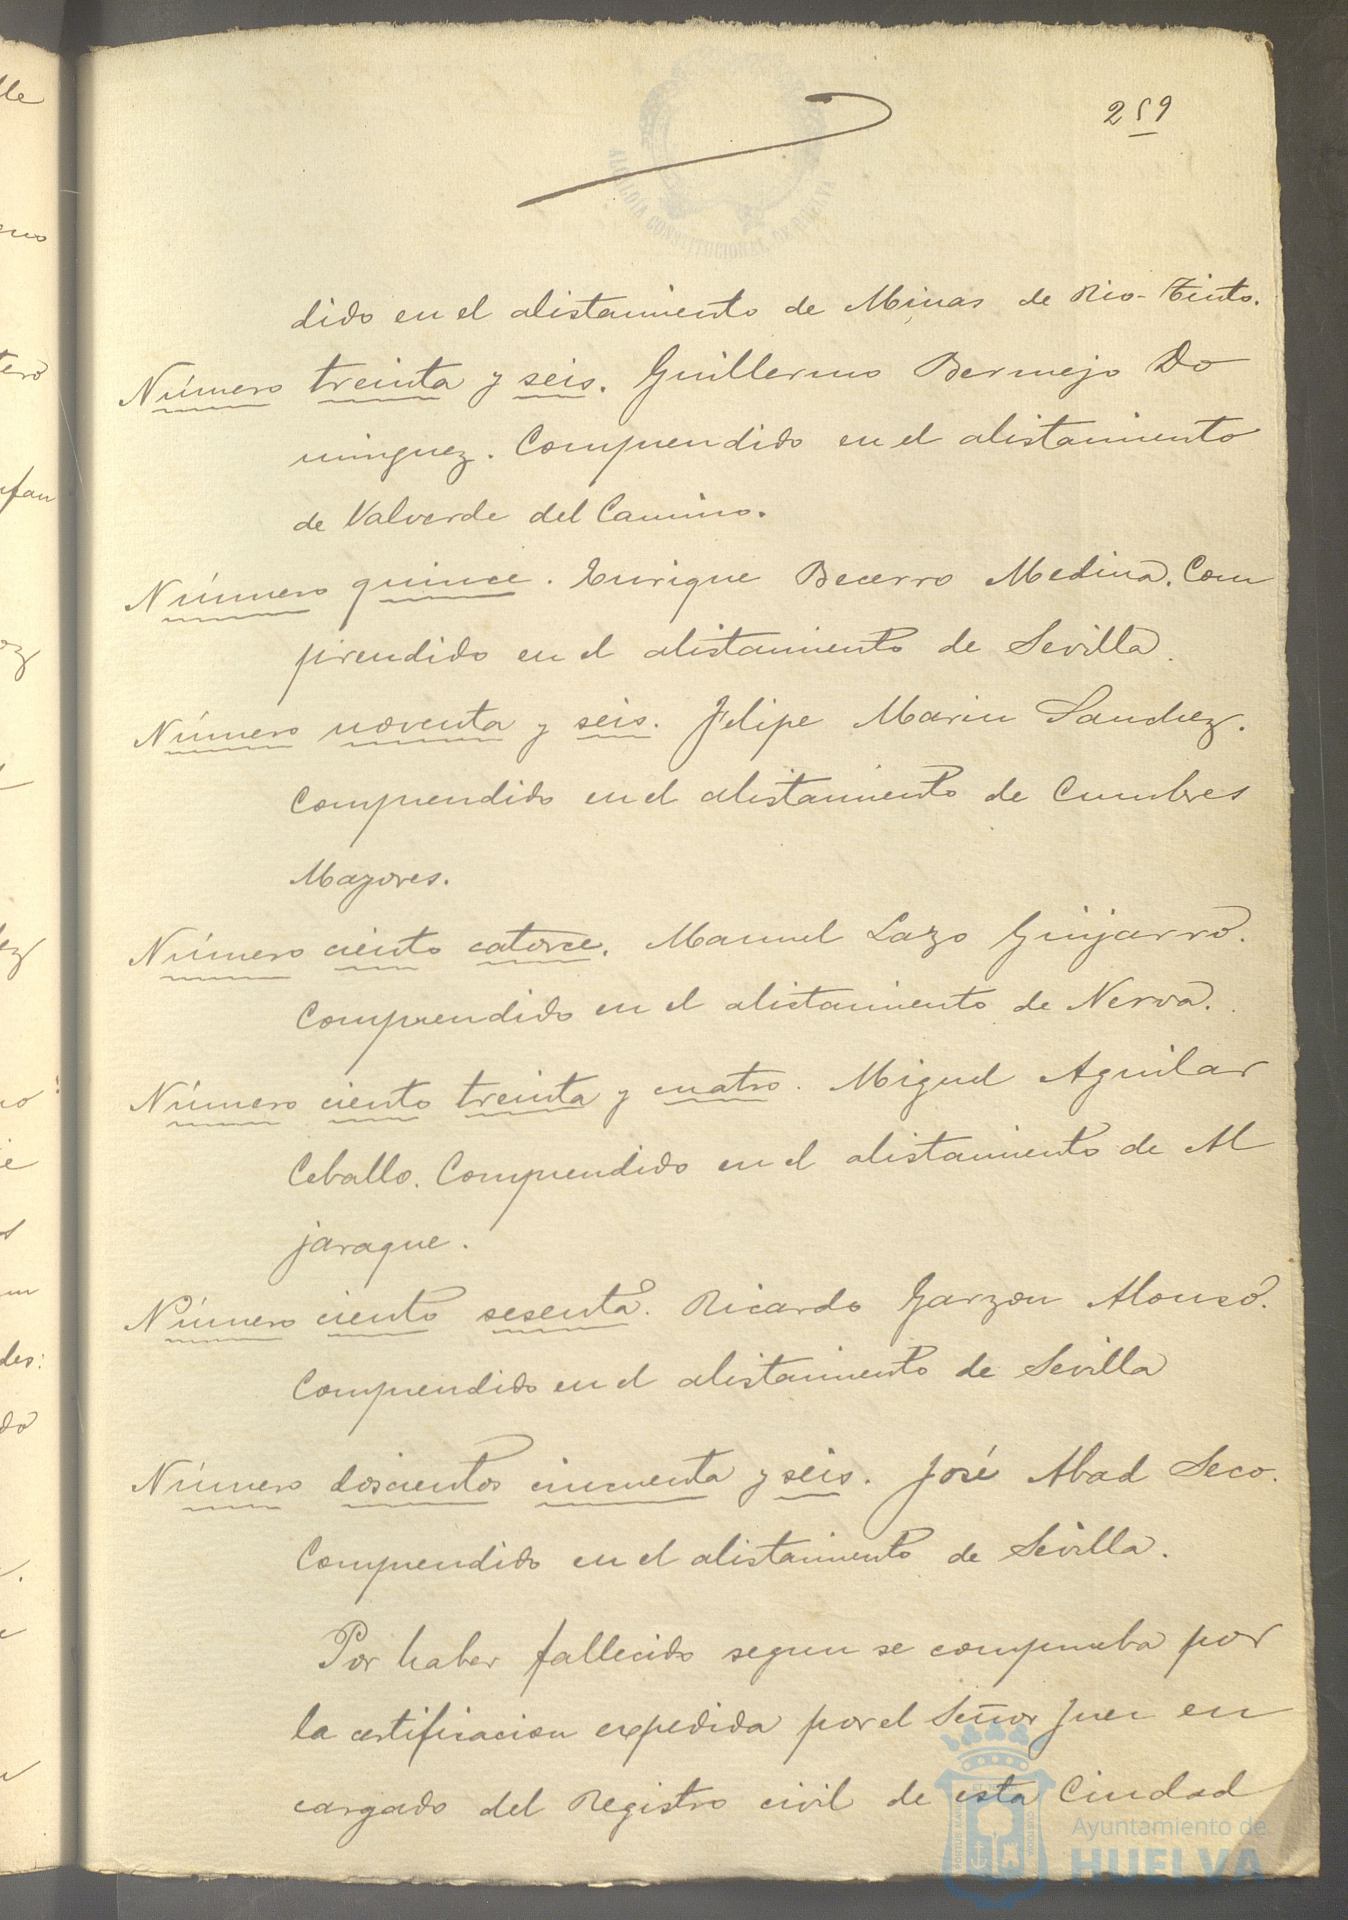 259
ALCALDIA CONSTITUCIONAL DE HUELVA
dido en el alistamiento de Minas de Rio-Tinto.
Número treinta y seis. Guillermo Bermejo Do
minguez. Comprendido en el alistamiento
de Valverde del Camino.
Número quince. Enrique Becerro Medina. Com
prendido en el alistamiento de Sevilla.
Número noventa y seis. Felipe Marin Sanchez.
Comprendido en el alistamiento de Cumbres
Mayores.
Número ciento catorce. Manuel Lazo Guijarro.
Comprendido en el alistamiento de Nerva.
Número ciento treinta y cuatro. Miguel Aguilar
Ceballo. Comprendido en el alistamiento de Al
jaraque.
Número ciento sesenta. Ricardo Garzon Alonso.
Comprendido en el alistamiento de Sevilla
Número doscientos cincuenta y seis. José Abad Seco.
Comprendido en el alistamiento de Sevilla.
Por haber fallecido segun se comprueba por
la certificacion expedida por el Señor Juez en
cargado del Registro civil de esta Ciudad
Ayuntamiento de
HUELVA